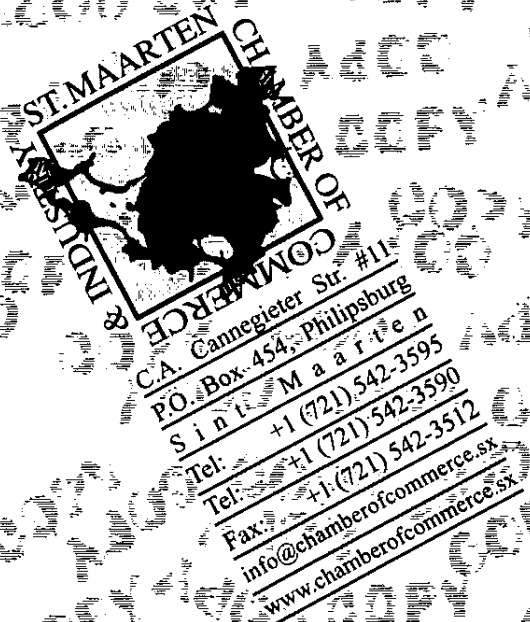 ST. MAARTEN
CHAMBER OF
COMMERCE
& INDUSTRY
C.A. Cannegieter Str. #11
P.O. Box 454, Philipsburg
Sint Maarten
Tel: +1 (721) 542-3595
Tel: +1 (721) 542-3590
Fax: +1 (721) 542-3512
info@chamberofcommerce.sx
www.chamberofcommerce.sx
COPY